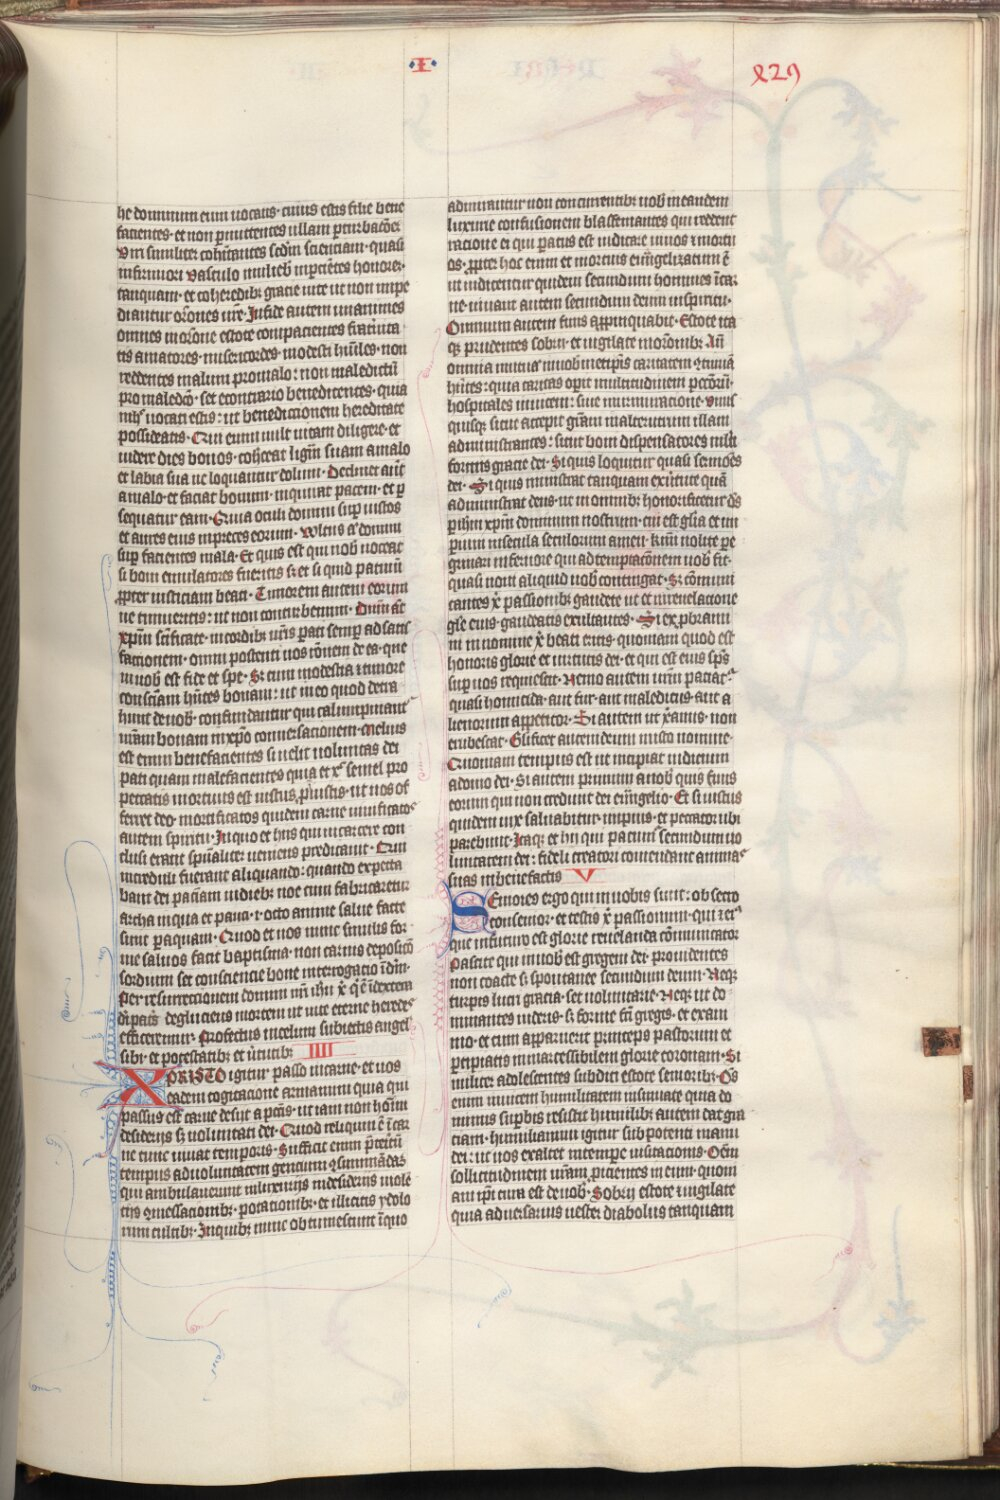 ·I·
229
he dominum eum uocans· cuius estis filie bene
facientes· et non ꝑtimentes ullam ꝑturbacōēꝫ
Viri similiter cohītantes scdm scienciam· quasi
infirmiori vasculo mulieb impcientes honorē·
tanquam· et coheredibꝫ gracie uite ut non impe
diantur orōnes ure· Infide autem unanimes
omnes inorōne estote compacientes frat̄nita
tis amatores· misericordes· modesti hūiles· non
reddentes malum promalo: non maledictū
pro maledco· set econtrario benedicentes· quia
inhͦ uocati estis: ut benedictionem hereditate
possideatis· Qui enim uult uitam diligere· et
uidere dies bonos· coherceat ligm̄ suam amalo
et labia sua ne loquantur dolum· Declinet aūt
amalo· et faciat bonum· inquirat pacem· et ꝑ
sequatur eam· Quia oculi domini suꝑ iustos
et aures eius inpreces eorum· Vultus aͣ domini
suꝑ facientes mala· Et quis est qui nob noceat
si boni emulatores fueritis sꝫ et si quid patimī
ꝓpter iusticiam beati· Timorem autem eorum
ne timueritis: ut non conturbemini· Dnm̄ aūt
xp̄m sc̄ificate· incordibꝫ uris ꝑati semꝑ ad satis
factionem· omni poscenti uos rōnem de ea· que
in uob est fide et spe· Sꝫ cum modestia ⁊ timore
consc̄iam hn̄tes bonam: ut in eo quod detra
hunt de uob· confundantur qui calumpniantᷣ
uram bonam inxp̄o conuersacionem· Melius
est enim benefacientes si uelit uoluntas dei
pati quam malefacientes quia et xͨ semel pro
peccatis mortuus est iustus ꝓiustis· ut nos of
ferret deo· mortificatos quidem carne uiuificatos
autem spiritu· Inquo et hiis qui incarcere con
clusi erant spūaliter ueniens predicauit· Qui
increduli fuerant aliquando: quando expecta
bant dei paciam indiebꝫ noe cum fabricaretur
archa inqua et pauci· ·i· octo anime salue facte
sunt ꝑaquam· Quod et uos nunc similis for
me saluos facit baptisma· non carnis depositō
sordium set consciencie bone interrogacio īdm·
Per resurrectionem domini nr̄i ihu x̄ q ē īdextera
di patͥs deglutiens mortem ut uite eterne heredes
efficeremur· Profectus incelum subiectis angel
sibi· et potestatibꝫ et ūtutibꝫ IIII
XPRISTO igitur passo incarne· et uos
eadem cogitacione armamini quia qui
passus est carne desiit a pctis· ut iam non hom̄
desideriis sꝫ uoluntati dei· Quod reliquum ē īcar
ne eius uiuat temporis· Sufficit enim pͥteritū
tempus aduoluntatem gencium ꝯsummādaꝫ
qui ambulauerunt inluxuriis indesideriis uiole
ciis ꝯmessacionibꝫ· potacionibꝫ· et illicitis ydolo
rum cultibꝫ· Inquibꝫ nunc obtunescunt īquo
admirantur non concurrentibꝫ uob in eandem
luxurie confusionem blasfemantes qui reddent
racione ei qui ꝑatus est iudicare uiuos ⁊ mortu
os· ꝓpter hoc enim et mortuis euāgelizatum ē
ut iudicentur quidem secundum homines ī car
ne· uiuant autem secundum deum inspiritu·
Omnium autem finis appinquabit· Estote ita
qꝫ prudentes sobrii· et uigilate inorōnibꝫ An̄
omnia mutuā inuobmetipis caritatem ꝯtinuā
hn̄tes: quia caritas opit multitudinem pctōꝝ·
hospitales inuicem: sine murmuracione· vnus
quisqꝫ sicut accepit grām inalterutrum illam
administrantes: sicut boni dispensatores mlti
formis gracie dei· Siquis loquitur quasi sermōes
dei· Si quis ministrat tanquam exūtute quā
administrat deus· ut in omnibꝫ honorificetur ds̄
ꝑ ihm xp̄m dominum nostrum· cui est glīa et im
ꝑium insecula seculorum amen· kmī nolite pe
grinari infernore qui adtemptacōnem uob fit·
quasi noui aliquid uob contingat· Sꝫ cōmuni
cantes x̄ passionibꝫ gaudete ut et inreuelacione
glē eius· gaudeatis exultantes· Si exꝓbrami
ni in nomine x̄ beati eritis· quoniam quod est
honoris glorie et uirtutis dei· et qui est eius spc̄
suꝑ uos requiescit· Nemo autem urm̄ paciatᷣ
quasi homicida· aut fur· aut maledicus· aut a
lienorum appetitor· Si autem ut x̄ianus· non
erubescat· Glificet autem deum inisto nomine·
Quoniam tempus est ut incipiat iudicium
adomo dei· Si autem primum anob quis finis
eorum qui non credunt dei euāngelio· Et si iustus
quidem uix saluabitur· impius· et peccator ubi
parebunt· Itaqꝫ et hii qui paciunt̄ secundum uo
luntatem dei: fideli creatori comendant animas
suas inbenefactis V
Seniores ergo qui in uobis sunt: obsecro
consenior· et testis x̄ passionum· qui ⁊ eiᷣ
que infuturo est glorie reuelanda cōmunicator
Pascite qui in uob est gregem dei· prouidentes
non coacte sꝫ spontanee secundum deum· Neqꝫ
turpis lucri gracia· set uoluntarie· Neqꝫ ut do-
minantes incleris· sꝫ forme fc̄i gregis· et exani
mo· et cum apparuerit princeps pastorum et
ꝑcipiatis inmarcessibilem glorie coronam· Si
militer adolescentes subditi estote senioribꝫ· Os̄
enim inuicem humilitatem insinuate quia do
minus suꝑbis resistit humilibꝫ autem dat gra
ciam· humiliamini igitur sub potenti manu
dei: ut uos exaltet intempe uisitacionis· Oēm
sollicitudinem uram ꝓicientes in eum· quoni
am ipi cura est de uob· Sobrii estote ⁊ uigilate
quia aduersarius uester diabolus tanquam